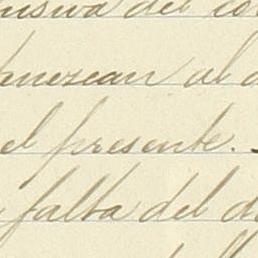 nsiva del co
anezcan al d
el presente.
falta del d